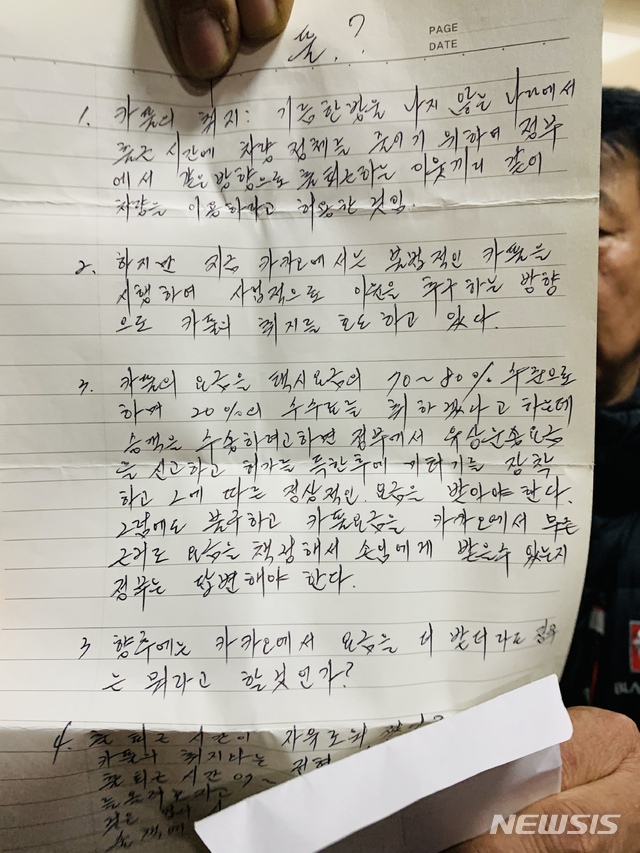 PAGE
DATE
?
1. 카풀의 취지: 기름한방울 나지 않는 나라에서
출근 시간에 차량 정체를 줄이기 위하여 정부
에서 같은 방향으로 출퇴근하는 이웃끼리 같이
차량을 이용하라고 허용한 것임.
2. 하지만 지금 카카오에서는 불법적인 카풀을
시행하여 사업적으로 이윤을 추구하는 방향
으로 카풀의 취지를 호도하고 있다.
3. 카풀의 요금을 택시요금의 70~80% 수준으로
하며 20%의 수수료를 취하겠다고 하는데
승객을 수송하려고하면 정부에서 유상운송요금
을 신고하고 허가를 득한후에 미터기를 장착
하고 그에 따르는 정상적인 요금을 받아야 한다.
그럼에도 불구하고 카풀요금을 카카오에서 무슨
근거로 요금을 책정해서 손님에게 받을수 있는지
정부는 답변해야 한다.
3 향후에는 카카오에서 요금을 더 받더라도 정부
는 뭐라고 할것인가?
4. 출퇴근 시간이 자유로워
카풀의 취지라는
출퇴근 시간
NEWSIS